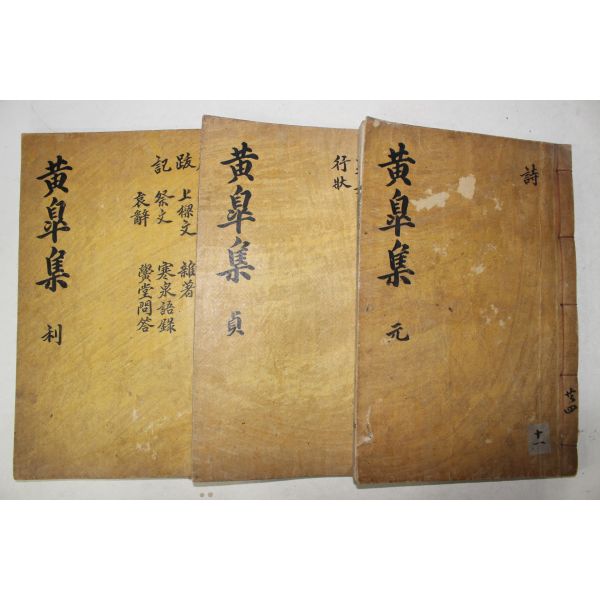 黃皐集 元
詩
卄四
十一
黃皐集 貞
行狀
黃皐集 利
跋 上樑文 雜著
記 祭文 寒泉語錄
哀辭 黌堂問答